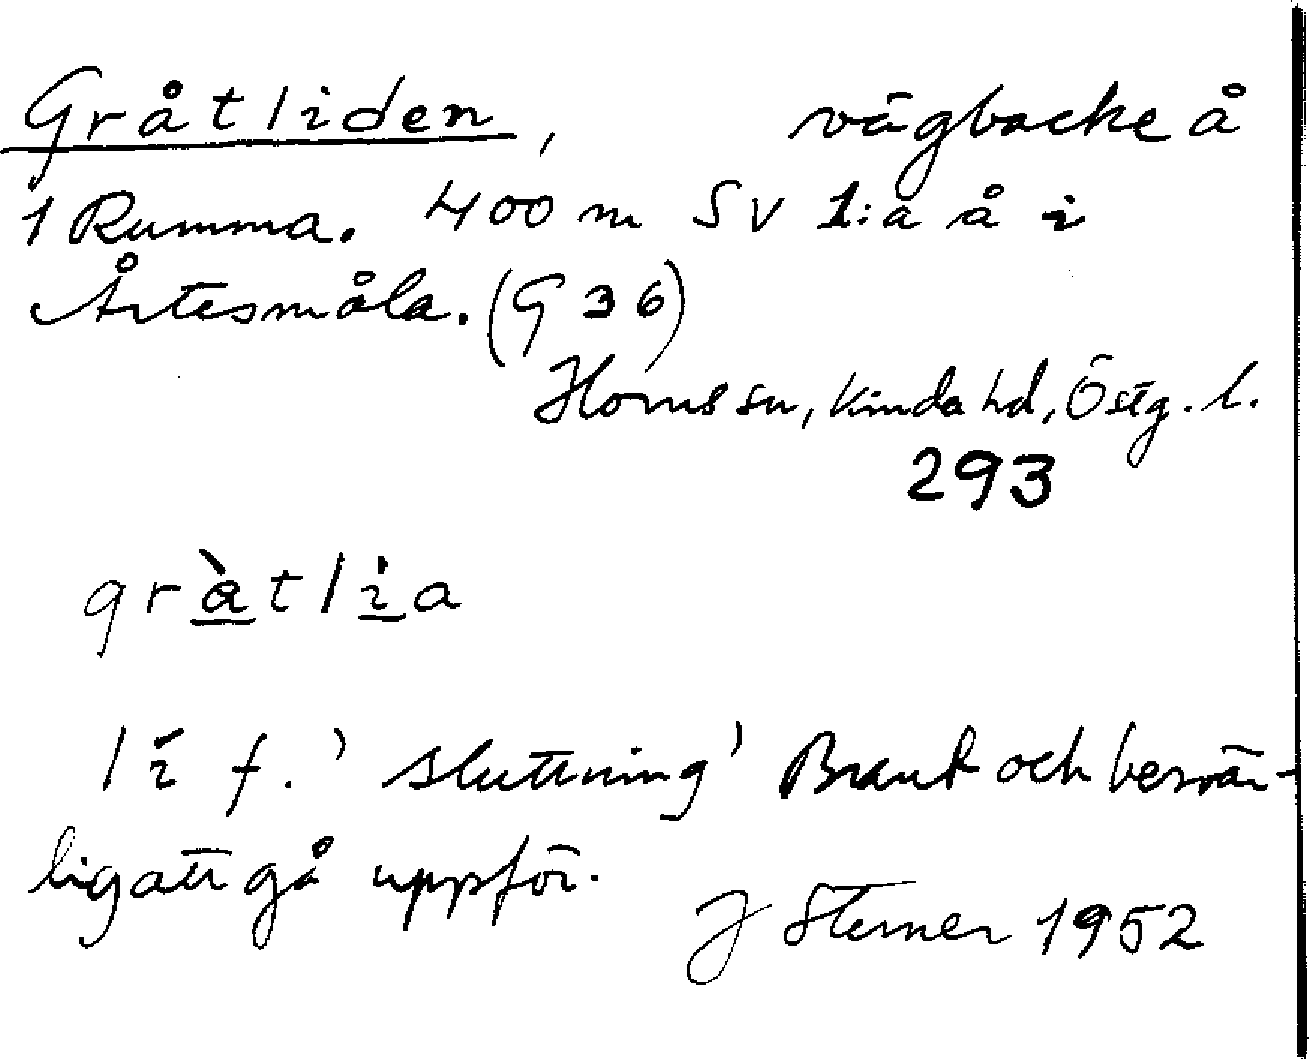 Gråtliden, vägbacke å
1 Rumma. 400 m SV 1:a å i
Årtesmåla. (G 36)
Horns sn, Kinda hd, Östg. l.
293
gràtlia
li f. 'sluttning' Brant och besvär-
lig att gå uppför.
J Sterner 1952